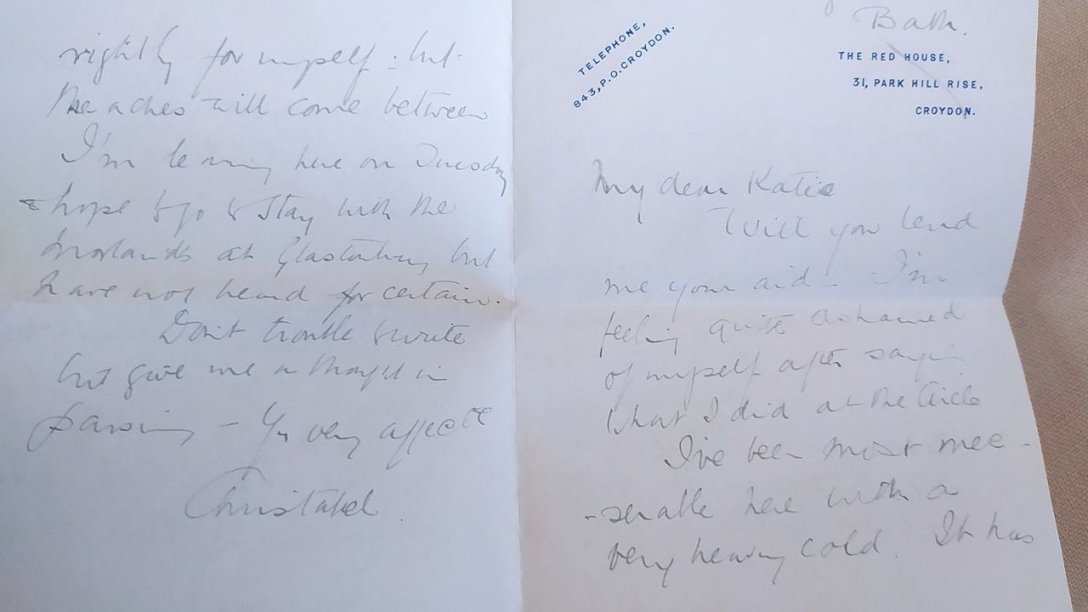 Bath.
TELEPHONE,
843, P.O. CROYDON.
THE RED HOUSE,
31, PARK HILL RISE,
CROYDON.
My dear Katie
Will you lend
me your aid - I'm
feeling quite ashamed
of myself after saying
what I did at the Circle
I've been most mee-
-serable here with a
very heavy cold. It has
rightly for myself: but
the aches will come between
I'm leaving here on Tuesday
& hope to go & stay with the
Morlands at Glastonbury but
have not heard for certain.
Don't trouble to write
but give me a thought in
passing - Yr very affecte
Christabel.